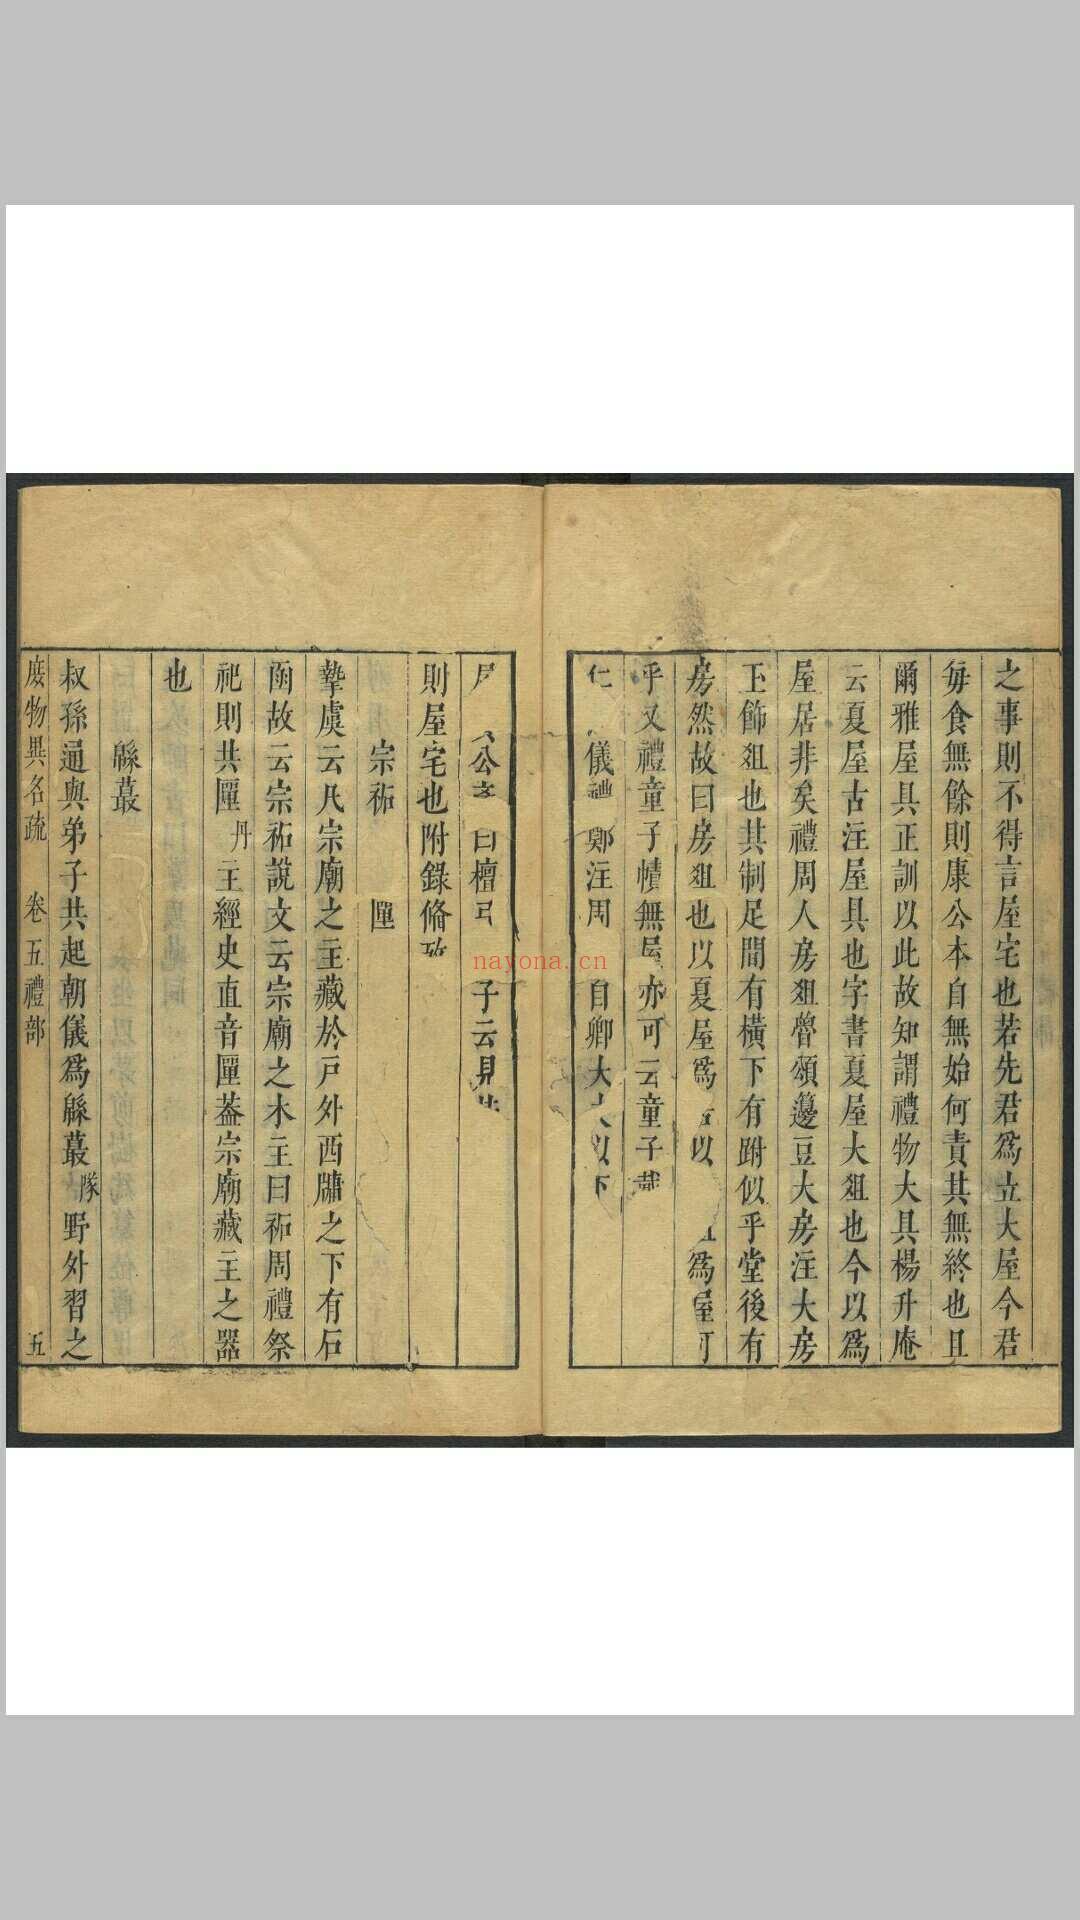 之事則不得言屋宅也若先君爲立大屋今君
每食無餘則康公本自無始何責其無終也且
爾雅屋具正訓以此故知謂禮物大具楊升庵
云夏屋古注屋具也字書夏屋大俎也今以爲
屋居非矣禮周人房俎魯頌籩豆大房注大房
玉飾俎也其制足間有橫下有跗似乎堂後有
房然故曰房俎也以夏屋爲 以 爲屋可
乎又禮童子幘無屋亦可云童子
儀禮 鄭注周 自卿大 以下
公 曰檀弓 子云見
則屋宅也附錄俻
宗祏 匰
摯虞云凡宗廟之主藏於戶外西牖之下有石
函故云宗祏說文云宗廟之木主曰祏周禮祭
祀則共匰丹主經史直音匰葢宗廟藏主之器
也
緜蕞
叔孫通與弟子共起朝儀爲緜蕞隊野外習之
廣物異名疏 卷五禮部 五
nayona.cn